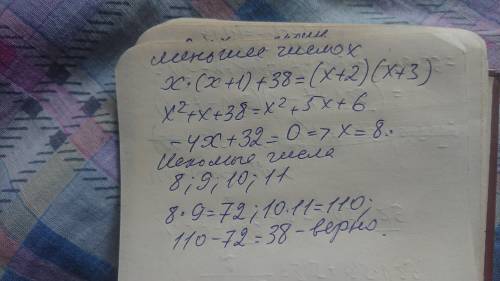 меньшее число x
x·(x+1)+38=(x+2)(x+3)
x²+x+38=x²+5x+6
-4x+32=0=>x=8.
Искомые числа
8; 9; 10; 11
8·9=72; 10·11=110;
110-72=38-верно.